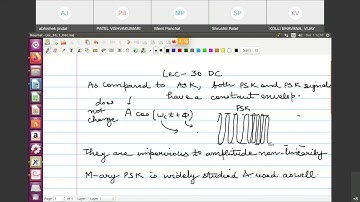 AJ PB MP SP KV
abhishek jindal PATEL VISHVAKUMARI Meet Panchal Shrushti Patel KOLLI BHAVANA, VIJAY
Lec-30 DC
As compared to ASK, both PSK and FSK signals
have a constant envelop.
does not change A cos(ωct + Φ)
FSK
They are impervious to amplitude non-linearity
M-ary PSK is widely studied & used as well.